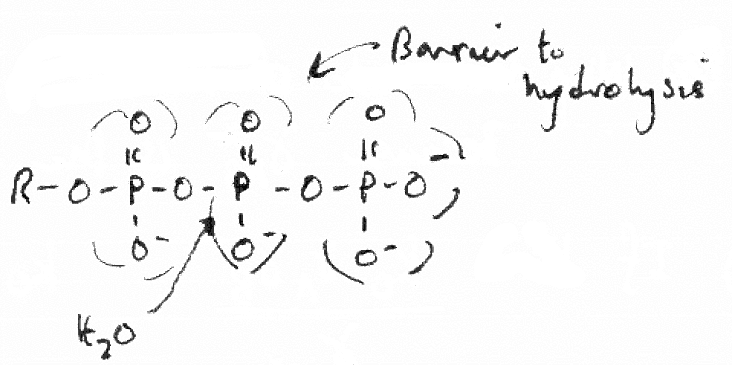 Barrier to
hydrolysis
O O O
R-O-P-O-P-O-P-O-
O- O- O-
H2O